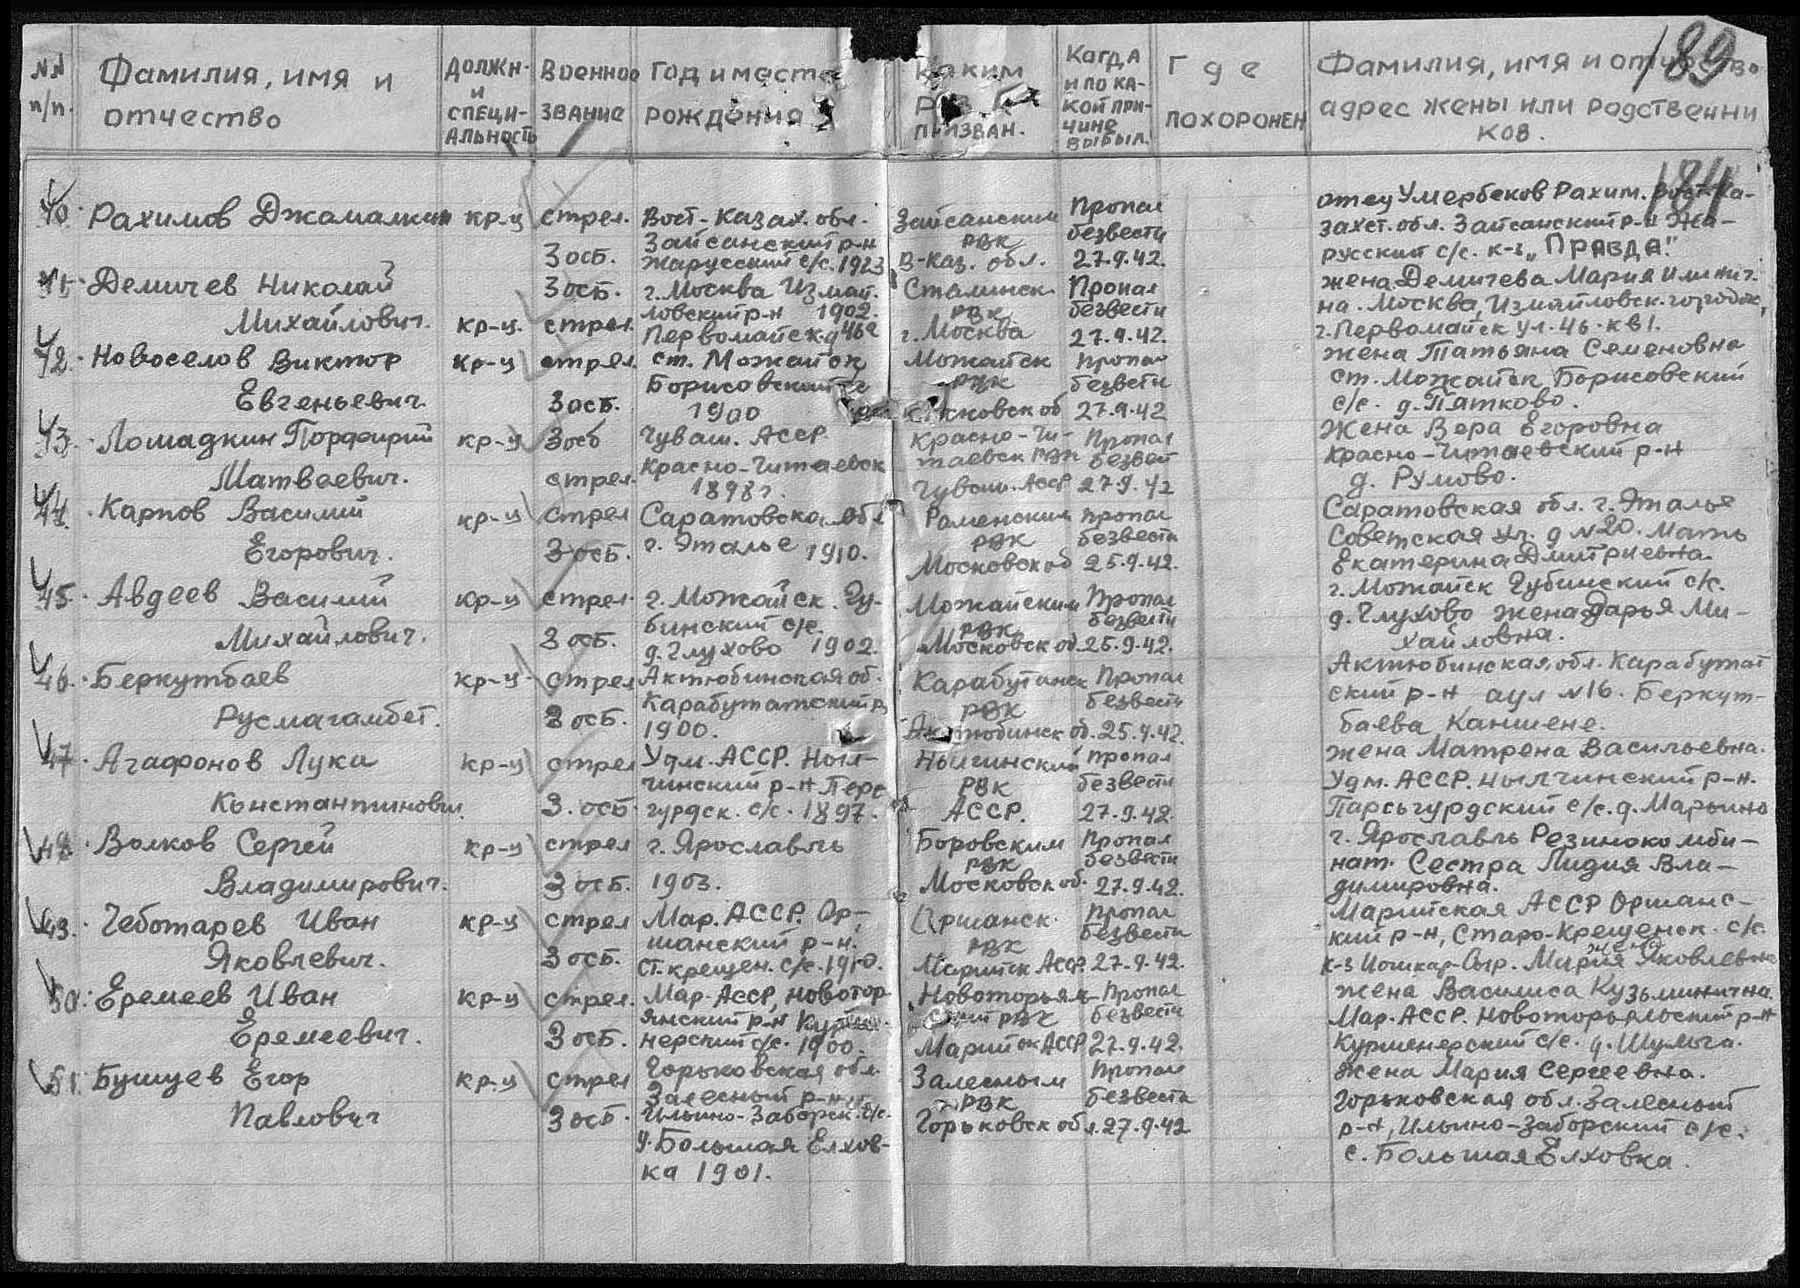 189
№№ п/п.
Фамилия, имя и отчество
Должн. и специальность
Военное звание
Год и место рождения
Каким РВК призван.
Когда и по какой причине выбыл.
Где похоронен
Фамилия, имя и отчество адрес жены или родственников.
184
40. Рахимов Джамалкин кр-ц стрел. Вост-Казах. обл. Зайсанским Пропал отец Умербеков Рахим. Вост-Ка-
Зайсанский р-н РВК безвести захст. обл. Зайсанский р-н Жа-
3 осб. Жарусский с/с. 1923 В-Каз. обл. 27.9.42. русский с/с. к-з „Правда".
41. Демичев Николай 3 осб. г. Москва Измай. Сталинск. Пропал жена Демичева Мария Илинич.
ловский р-н 1902. РВК безвести на. Москва, Измайловск. городок,
Михайлович. кр-ц. стрел. Первомайск. д 46а г. Москва 27.9.42. г. Первомайск ул. 46. кв 1.
42. Новоселов Виктор кр-ц стрел. ст. Можайск Можайск Пропал жена Татьяна Семеновна
Борисовский с/с РВК безвести ст. Можайск Борисовский
Евгеньевич 3 осб. 1900 Московск об 27.9.42 с/с. д. Пятково.
43. Ломадкин Порфирий кр-ц 3 осб Чуваш. АССР. Красно-Чи- Пропал Жена Вера Егоровна
таевск РВК безвест
Матвеевич. стрел. Красно-Читаевск Чуваш. АССР 27.9.42 Красно-Читаевский р-н
1898 г. д. Румово.
44. Карпов Василий кр-ц стрел Саратовска обл Раменским пропал Саратовская обл. г. Эталье
РВК безвести Советская ул. д №20. Мать
Егорович. 3 осб. г. Эталье 1910. Московск об 25.9.42. Екатерина Дмитриевна.
45. Авдеев Василий кр-ц стрел. г. Можайск. Гу- Можайским Пропал г. Можайск Губинский с/с.
бинский с/с. РВК безвести д. Глухово жена Дарья Ми-
Михайлович. 3 осб. д. Глухово 1902. Московск об. 25.9.42. хайловна.
46. Беркутбаев кр-ц стрел Актюбинская об. Карабутанск Пропал Актюбинская обл. Карабутат
Карабутатский р РВК безвести ский р-н аул №16. Беркут-
Русмагамбет. 3 осб. 1900. Актюбинск об. 25.9.42. баева Каншене.
47. Агафонов Лука кр-ц стрел Удм. АССР. Ныл- Нылгинский пропал жена Матрена Васильевна.
гинский р-н Перс РВК безвести Удм. АССР. Нылгинский р-н.
Константинович. 3. осб гурдск. с/с. 1897. АССР. 27.9.42. Парсьгурдский с/с. д. Марьино
48. Волков Сергей кр-ц стрел г. Ярославль Боровским Пропал г. Ярославль Резинокомби-
РВК безвести нат. Сестра Лидия Вла-
Владимирович. 3 осб. 1903. Московск об. 27.9.42. димировна.
49. Чеботарев Иван кр-ц стрел Мар. АССР. Ор- Оршанск. Пропал Марийская АССР Оршанс-
шанский р-н. РВК безвести кий р-н, Старо-Крещенск. с/с.
Яковлевич. 3 осб. Ст. крещен. с/с. 1910. Марийск АССР. 27.9.42. к-з Йошкар-Сыр. жена Мария Яковлевна
50. Еремеев Иван кр-ц стрел. Мар. АССР, Новотор Новоторьял- Пропал жена Василиса Кузьминична.
янский р-н РВК безвести Мар. АССР. Новоторьяльский р-н
Еремеевич. 3 осб. нерский с/с. 1900. Марийск АССР 27.9.42. Куршенерский с/с. д. Шульга.
51. Бушуев Егор кр-ц стрел Горьковская обл. Залесным Пропал жена Мария Сергеевна.
Залесный р-н РВК безвести Горьковская обл. Залесный
Павлович 3 осб. Ильино-Заборск. с/с. Горьковск обл. 27.9.42 р-н, Ильино-Заборский с/с.
д. Большая Елхов- с. Большая Елховка.
ка 1901.